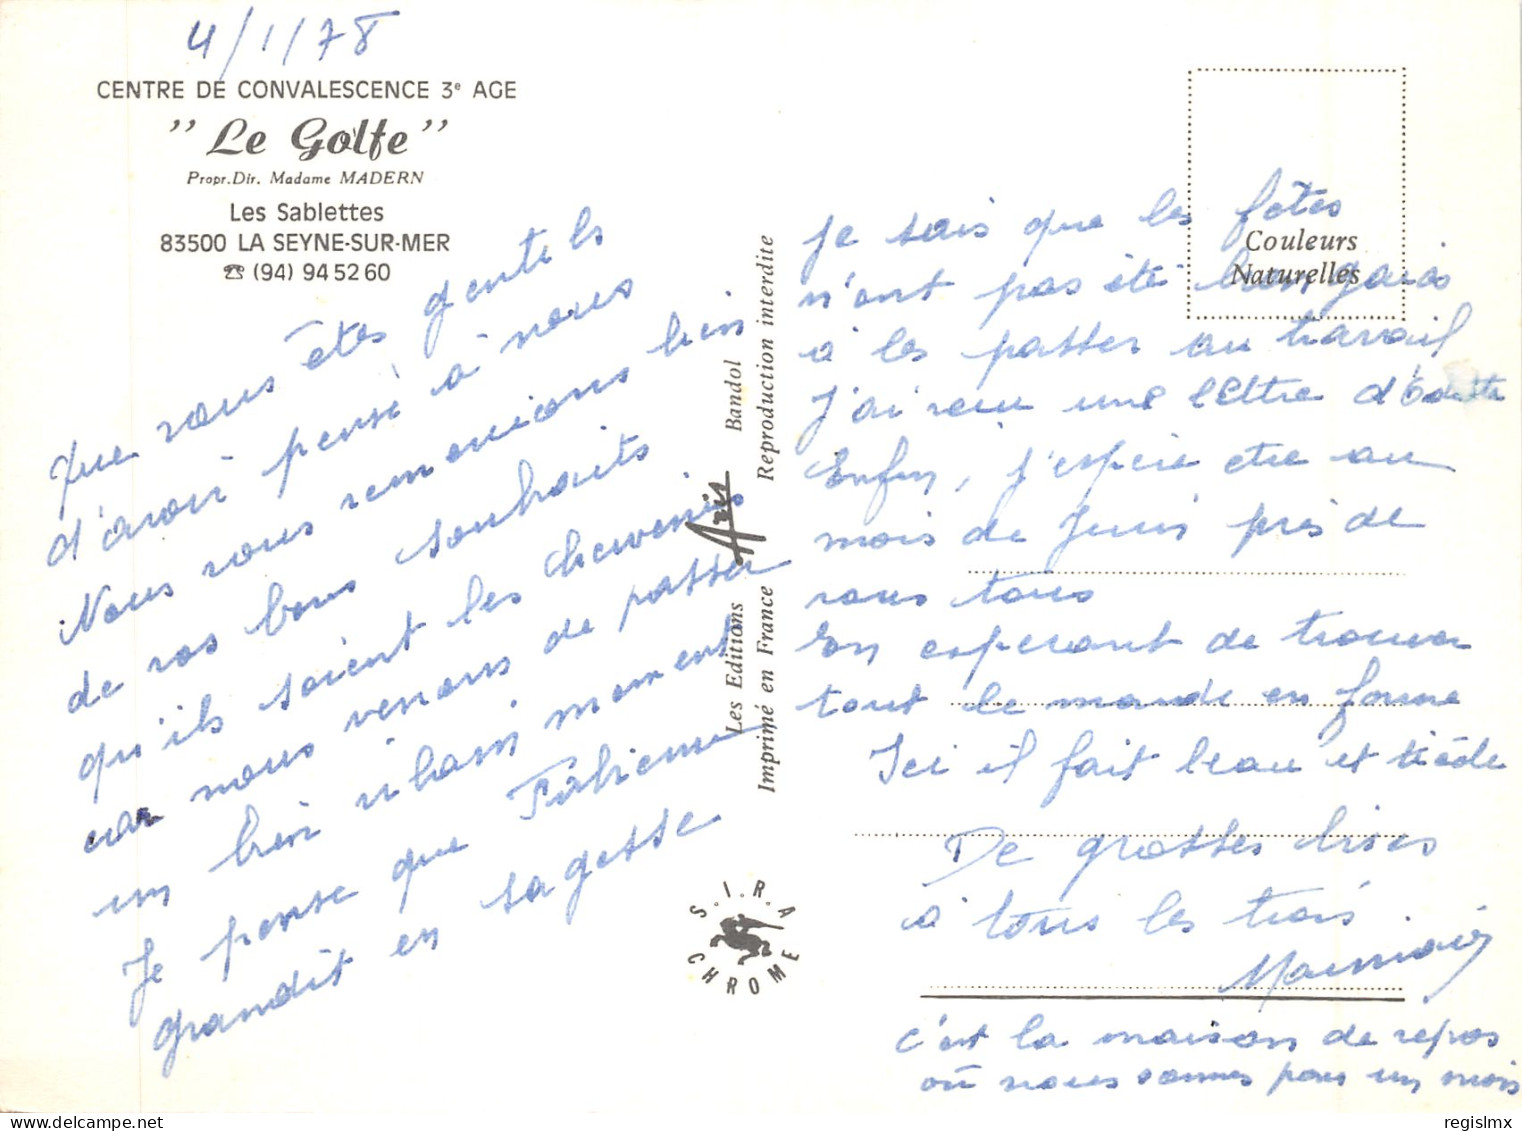 4/1/78
CENTRE DE CONVALESCENCE 3e AGE
"Le Golfe"
Propr.Dir. Madame MADERN
Les Sablettes
83500 LA SEYNE-SUR-MER
☎ (94) 94 52 60
que vous êtes gentils
d'avoir pensé à nous
Nous vous remercions bien
de vos bons souhaits
qu'ils soient les bienvenus
car nous venons de passer
un bien vilain moment
Je pense que Fabienne
grandit en sagesse
Les Editions Aris Bandol
Imprimé en France Reproduction interdite
S.I.R.A
CHROME
Couleurs
Naturelles
je sais que les fêtes
n'ont pas été bien gaies
à les passer au travail
J'ai reçu une lettre d'Odette
Enfin, j'espère être au
mois de Juin près de
vous tous
En esperant de trouver
tout le monde en forme
Ici il fait beau et tiède
De grosses bises
à tous les trois
c'est la maison de repos
où nous sommes pour un mois
regislmx